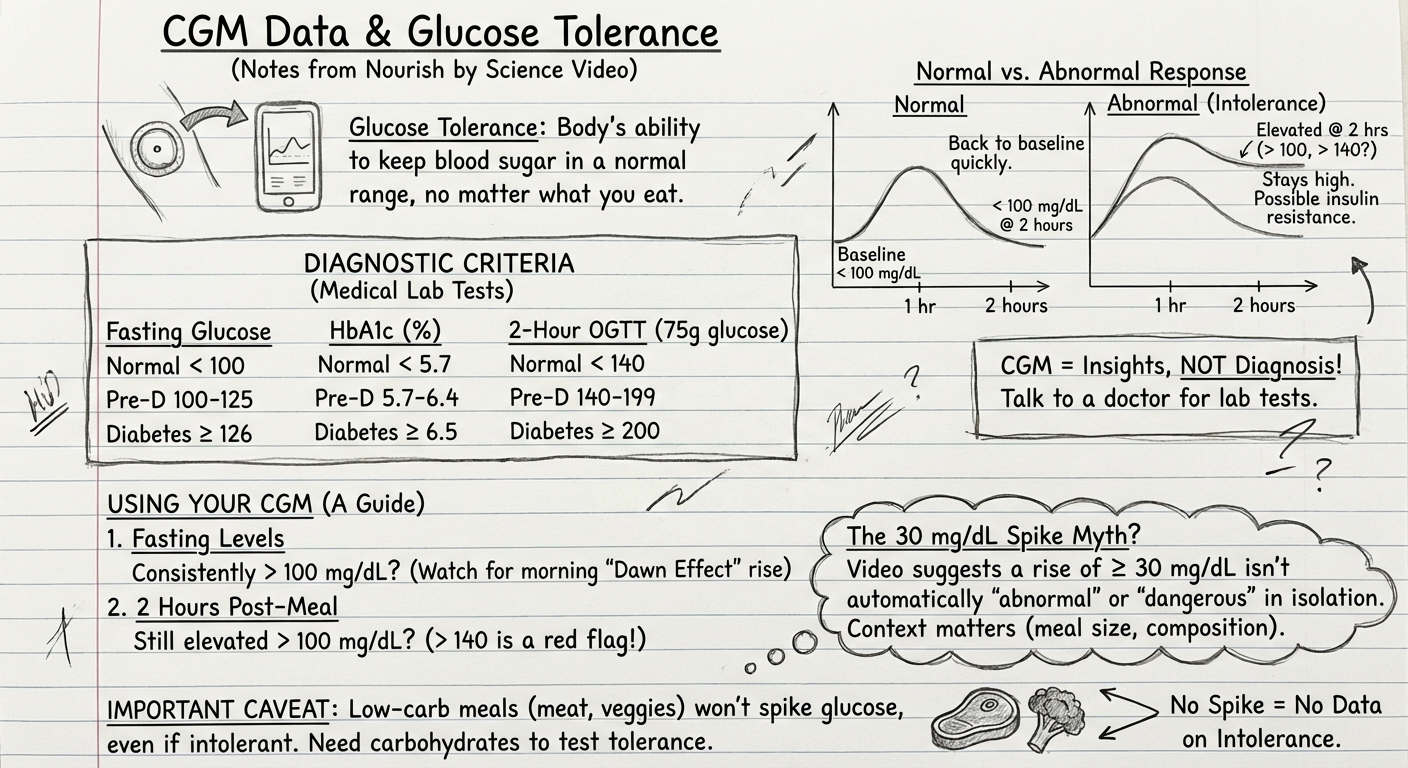 CGM Data & Glucose Tolerance
(Notes from Nourish by Science Video)
Glucose Tolerance: Body's ability
to keep blood sugar in a normal
range, no matter what you eat.
DIAGNOSTIC CRITERIA
(Medical Lab Tests)
Fasting Glucose HbA1c (%) 2-Hour OGTT (75g glucose)
Normal < 100 Normal < 5.7 Normal < 140
Pre-D 100-125 Pre-D 5.7-6.4 Pre-D 140-199
Diabetes ≥ 126 Diabetes ≥ 6.5 Diabetes ≥ 200
Normal vs. Abnormal Response
Normal
Back to baseline
quickly.
< 100 mg/dL
@ 2 hours
Baseline
< 100 mg/dL
1 hr 2 hours
Abnormal (Intolerance)
Elevated @ 2 hrs
(> 100, > 140?)
Stays high.
Possible insulin
resistance.
1 hr 2 hours
CGM = Insights, NOT Diagnosis!
Talk to a doctor for lab tests.
?
?
?
USING YOUR CGM (A Guide)
1. Fasting Levels
Consistently > 100 mg/dL? (Watch for morning “Dawn Effect” rise)
2. 2 Hours Post-Meal
Still elevated > 100 mg/dL? (> 140 is a red flag!)
The 30 mg/dL Spike Myth?
Video suggests a rise of ≥ 30 mg/dL isn't
automatically “abnormal” or “dangerous” in isolation.
Context matters (meal size, composition).
IMPORTANT CAVEAT: Low-carb meals (meat, veggies) won't spike glucose,
even if intolerant. Need carbohydrates to test tolerance.
No Spike = No Data
on Intolerance.